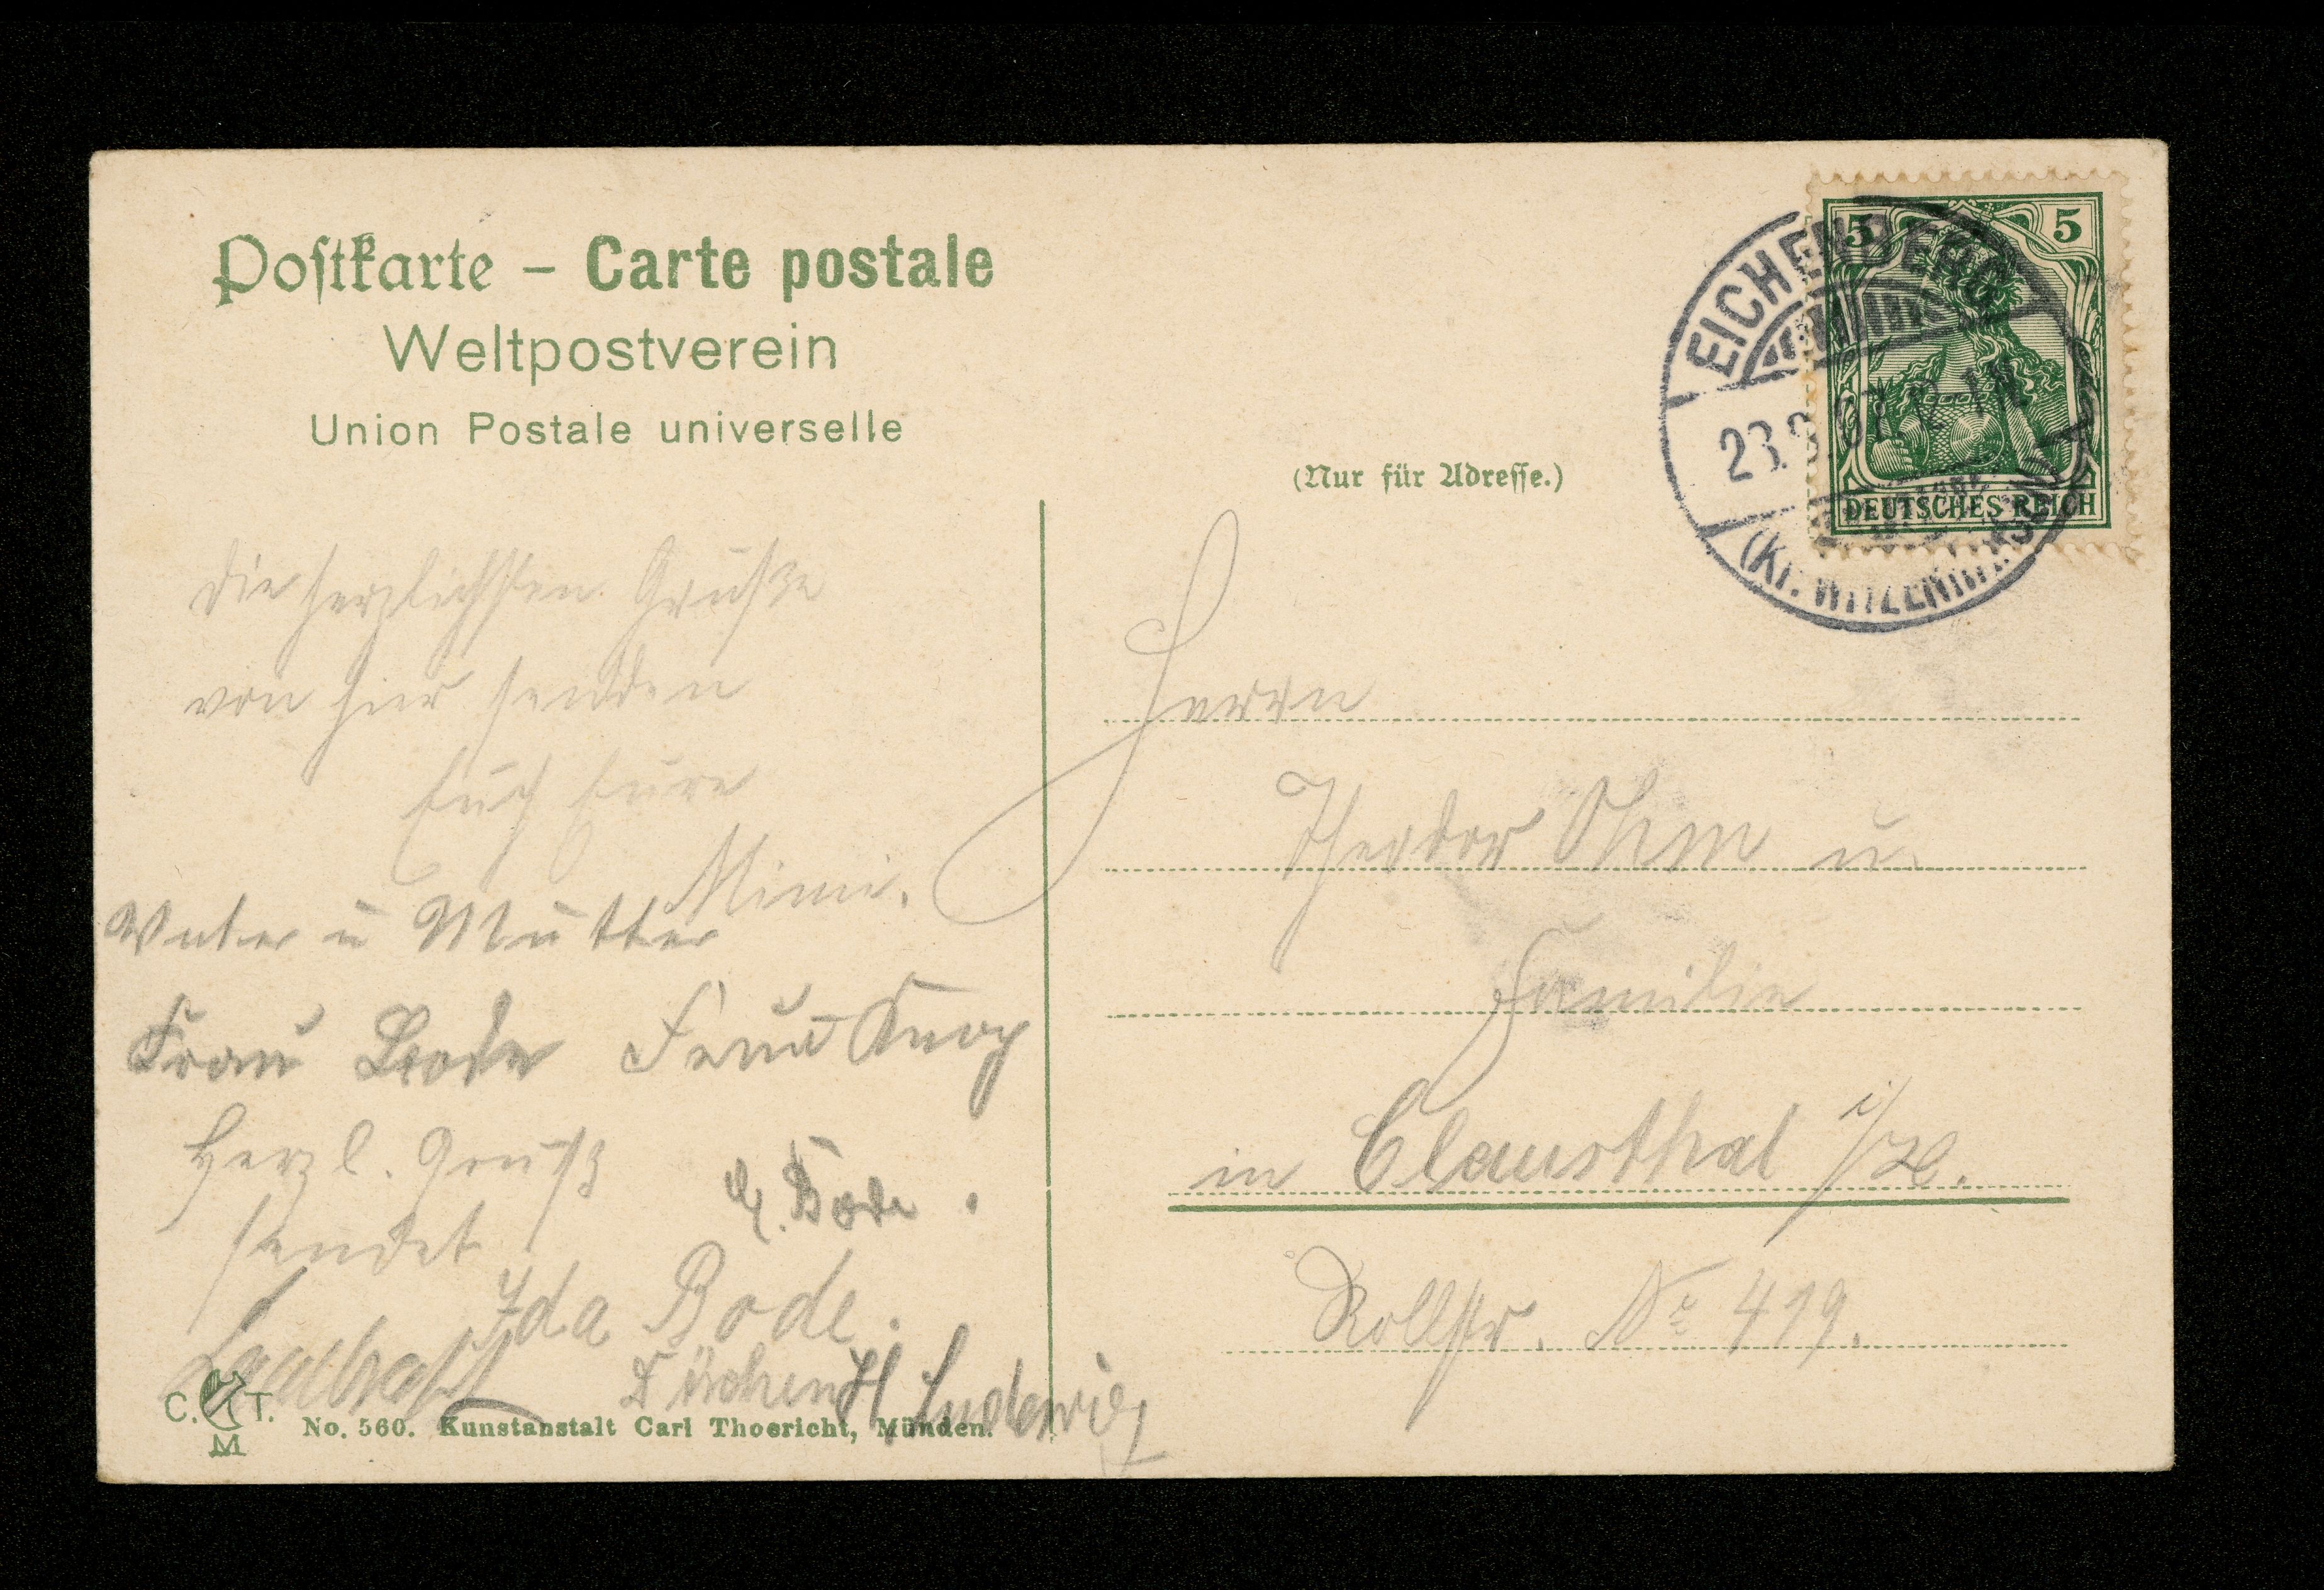 Postkarte – Carte postale
Weltpostverein
Union Postale universelle
(Nur für Adresse.)
5 5
DEUTSCHES REICH
EICHENBERG
23. 07
(Kr. WITZENHAUSEN)
die herzlichsten Grüße
von hier senden
Euch Eure
Mimi.
Vater u Mutter
Frau Bode Frau Knop
Herzl. Gruß
sendet
Bode.
Ida Bode.
H Ludewig
Herrn
Theodor Ohm u.
Familie
in Clausthal i/H.
Rollstr. No 419.
C. T.
M
No. 560. Kunstanstalt Carl Thoericht, Münden.